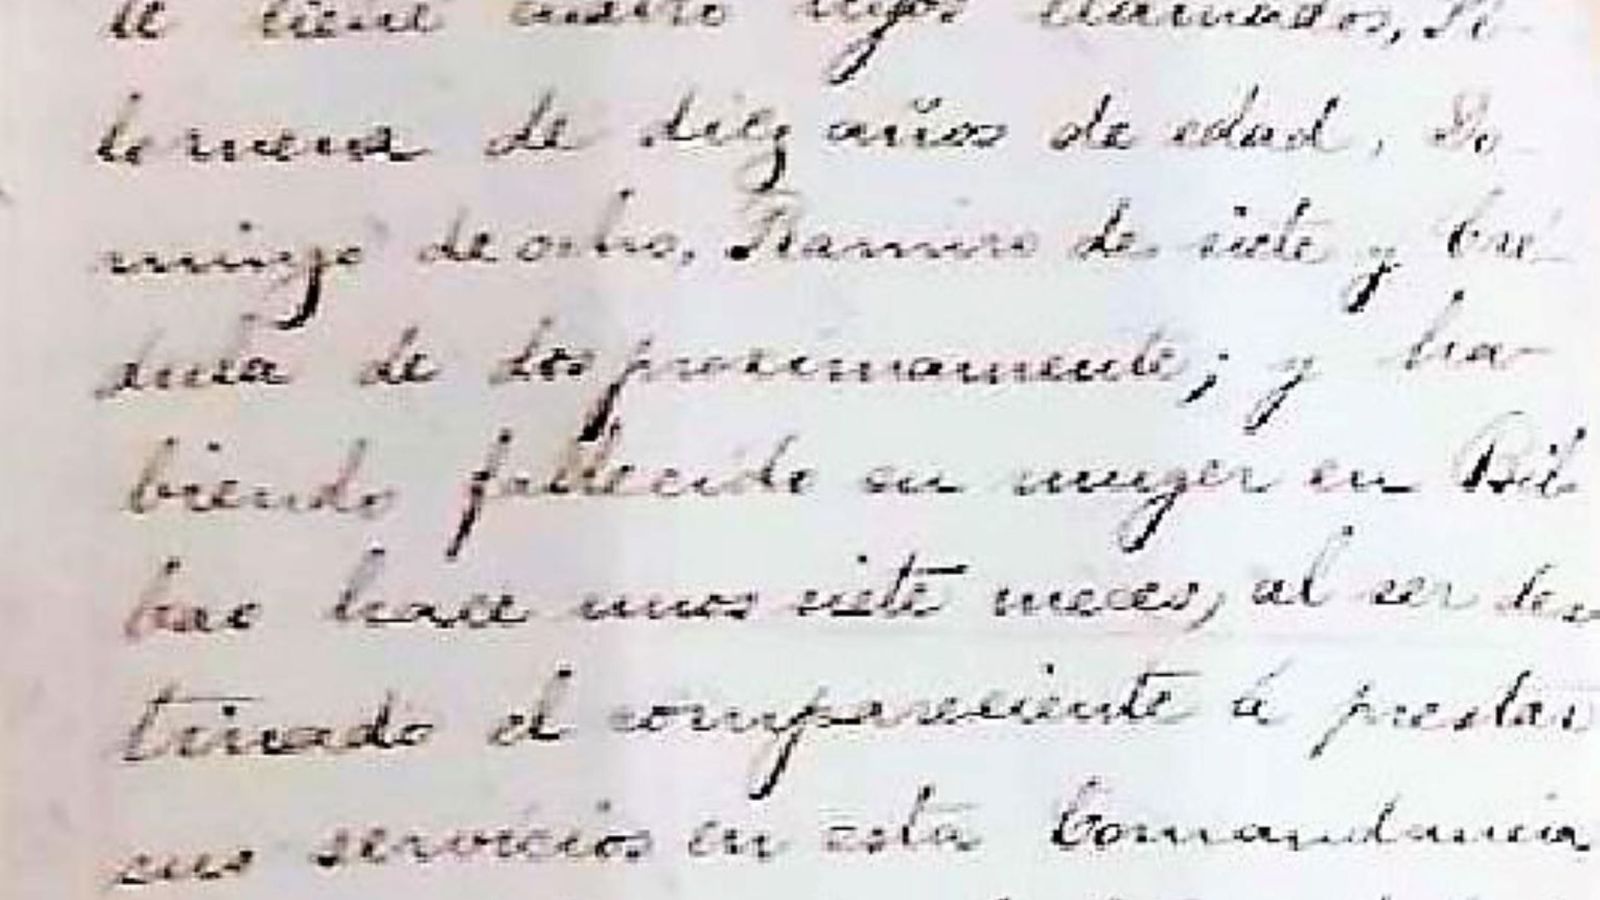 le tiene cuatro hijos llamados, Fi-
lomena de diez años de edad, Do-
mingo de ocho, Ramiro de siete y Cré-
dula de dos proximamente; y ha-
biendo fallecido su muger en Bil
bao hace unos siete meces, al ser des
tinado el compareciente á prestar
sus servicios en esta Comandancia